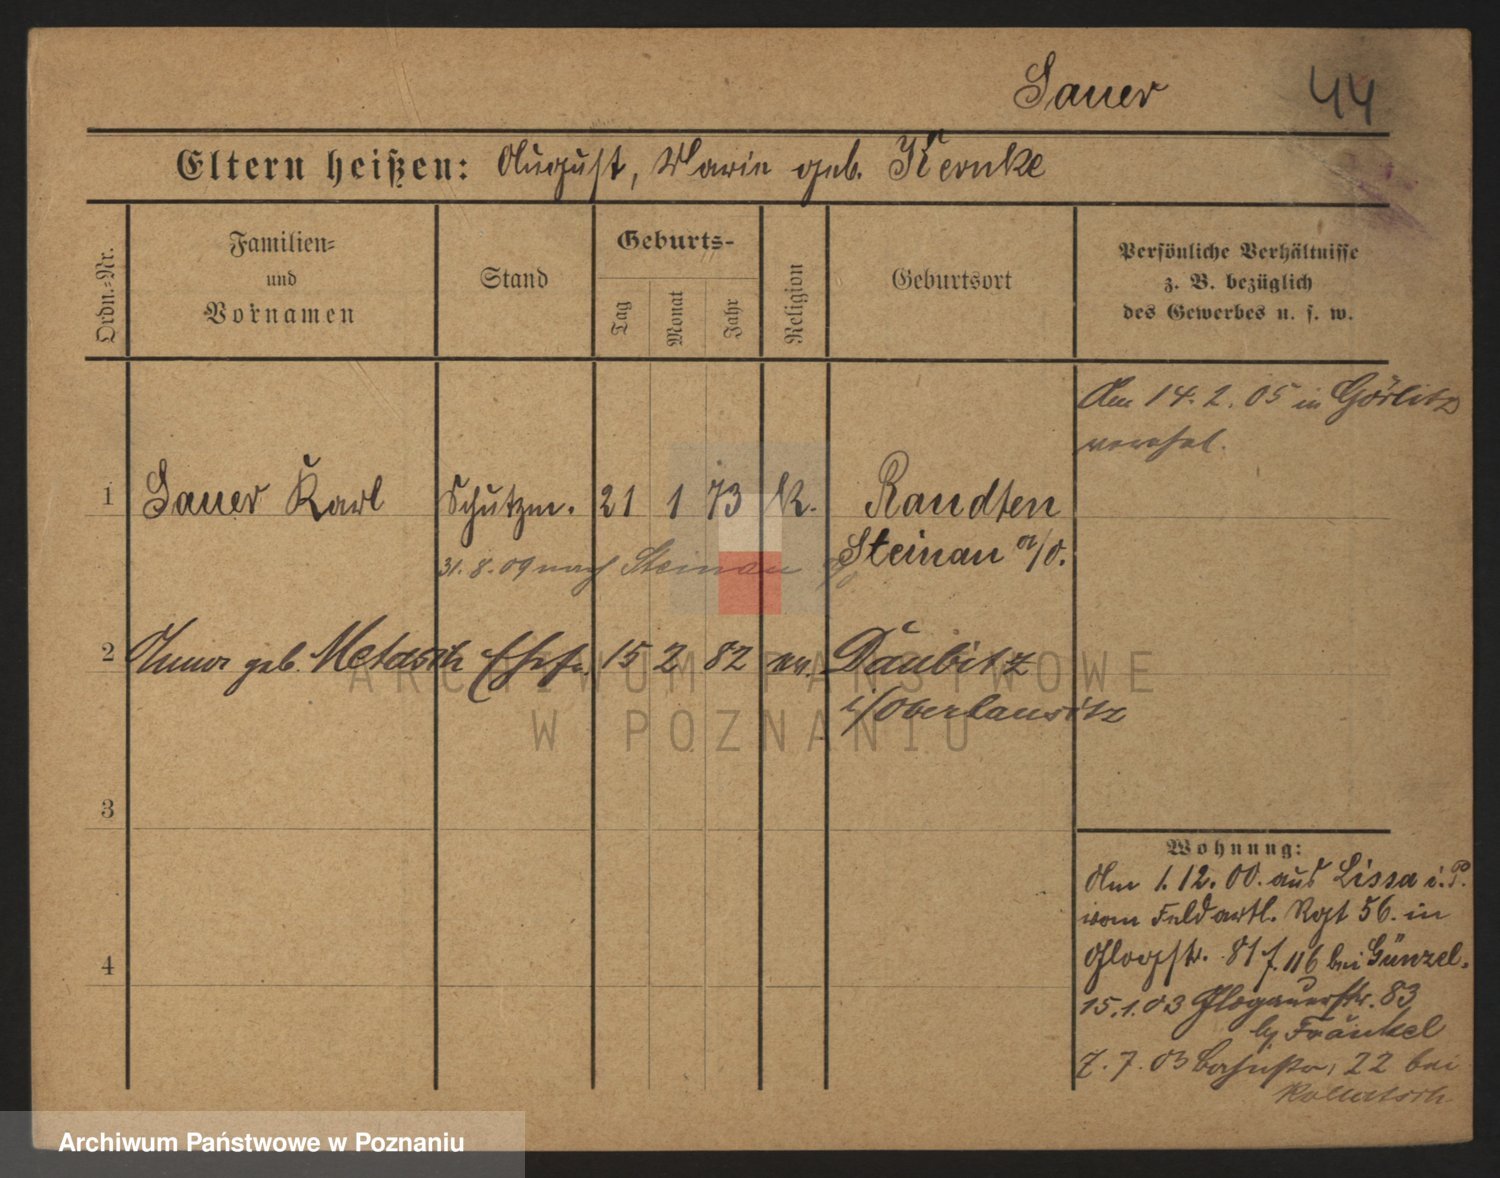 Sauer 44
Eltern heißen: August, Marie geb. Kernke
Ordn.-Nr.
Familien-
und
Vornamen
Stand
Geburts-
Tag
Monat
Jahr
Religion
Geburtsort
Persönliche Verhältnisse
z. B. bezüglich
des Gewerbes u. s. w.
Am 14. 2. 05 in Görlitz
verehel.
1 Sauer Karl Schutzm. 21 1 73 k. Randten
Steinau a/O.
31. 8. 09 nach Steinau
2 Anna geb. Metasch Ehefr. 15 2 82 ev. Daubitz
i/Oberlausitz
3
4
Wohnung:
Am 1. 12. 00. aus Lissa i. P.
vom Feldartl. Rgt 56. in
Glogstr. 81 f. 116 bei Günzel.
15. 1. 03 Glogauerstr. 83
by Fränkel
7. 7. 03 22 bei
Kollatsch
ARCHIWUM PAŃSTWOWE
W POZNANIU
Archiwum Państwowe w Poznaniu